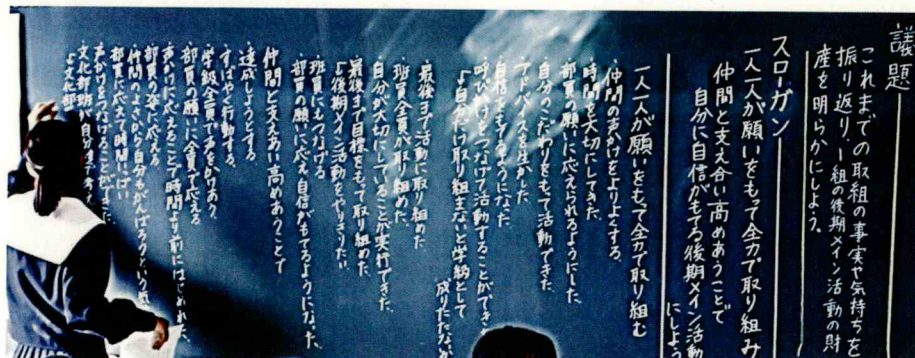 議題
これまでの取組の事実や気持ちを
振り返り、1組の後期メイン活動の財
産を明らかにしよう。
スローガン
一人一人が願いをもって全力で取り組み
仲間と支え合い高めあうことで
自分に自信がもてる後期メイン活動
にしよう
一人一人が願いをもって全力で取り組む
・仲間の声かけをよりよとする。
・時間を大切にしてきた
・部員の願いに応えられるようにした。
・自分のこだわりをもって活動できた。
・アドバイスを生かした
・自信をもてるようになった
・呼びかけをつなげて活動することができ、
↓自分だけ取り組まないと学級として
成りたたなか
・最後まで活動に取り組めた
・班員全員が取り組めた。
・自分が大切にしていることが実行できた。
・最後まで目標をもって取り組めた。
↓後期メイン活動をやりきりたい。
・班員にもつなげる
・部員の願いに応え自信がもてるようになった、
仲間と支えあい高めあうことで
・達成しようとする
・すばやく行動する。
・学級全員で声をかけあう
・部員の願いに全員で応える
・声かけに応えることで時間より前にはじめられた、
・部員の姿に応える
・仲間のよさから自分もがんばろうという気
・部員に応えて時間いっぱい
・声かけをつなげることができた
・文化部班が自分達で考え
↓文化部